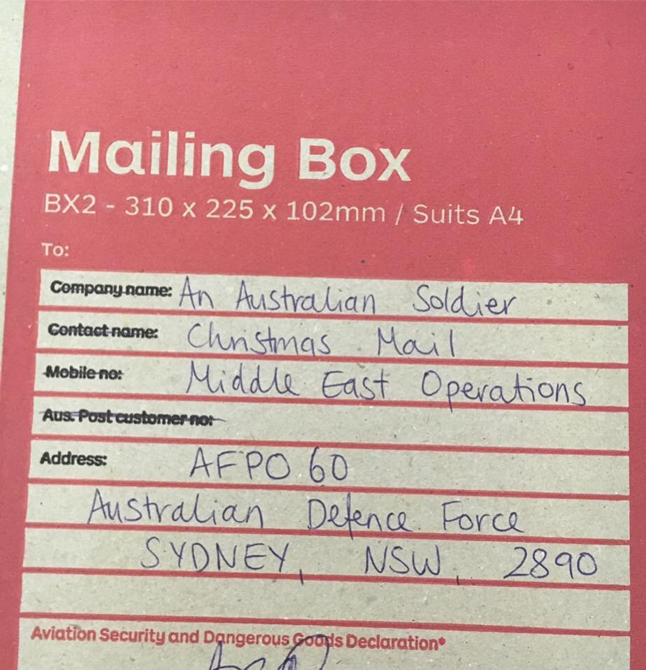 Mailing Box
BX2 - 310 x 225 x 102mm / Suits A4
To:
Company name: An Australian Soldier
Contact name: Christmas Mail
Mobile no: Middle East Operations
Aus. Post customer no:
Address: AFPO 60
Australian Defence Force
SYDNEY, NSW, 2890
Aviation Security and Dangerous Goods Declaration*